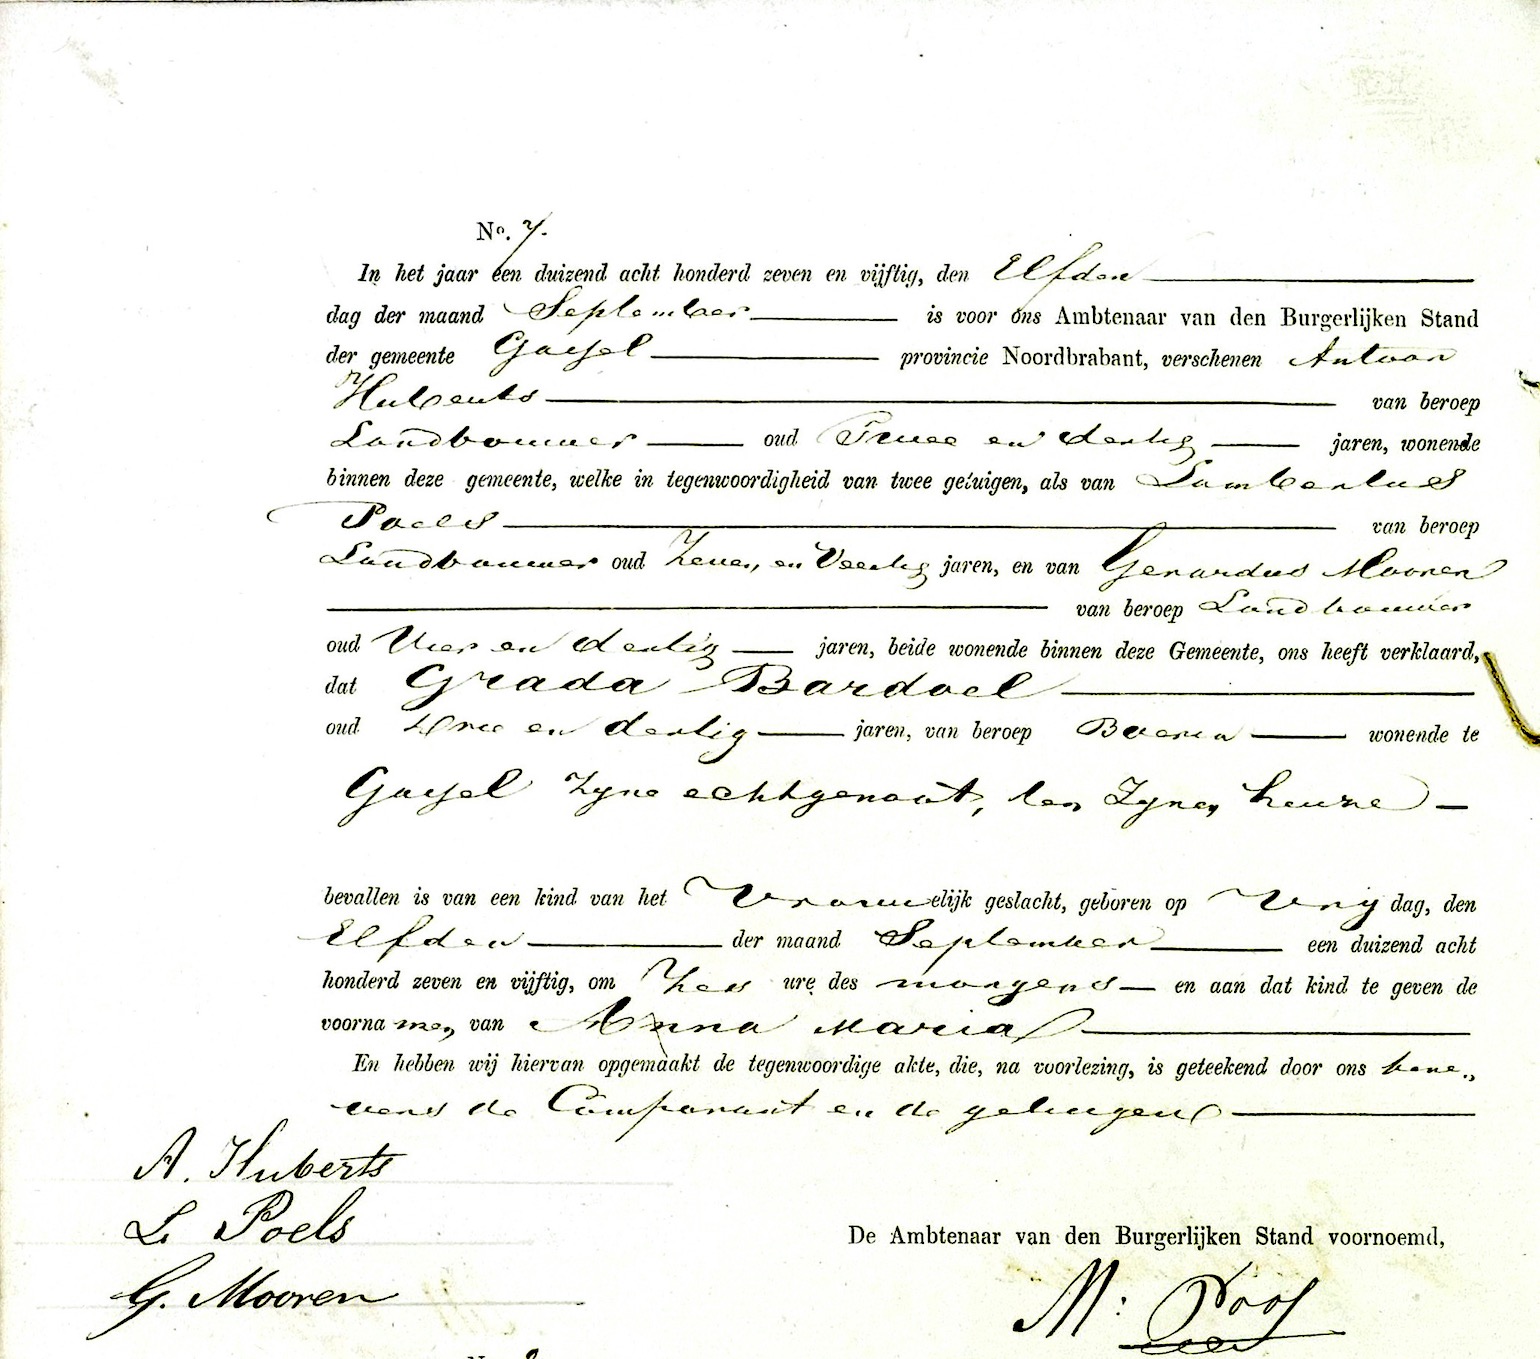 No. 7.
In het jaar een duizend acht honderd zeven en vijftig, den Elfden
dag der maand September is voor ons Ambtenaar van den Burgerlijken Stand
der gemeente Gassel provincie Noordbrabant, verschenen Antoon
Huberts van beroep
Landbouwer oud Twee en dertig jaren, wonende
binnen deze gemeente, welke in tegenwoordigheid van twee getuigen, als van Lambertus
Poels van beroep
Landbouwer oud Zeven en Veertig jaren, en van Gerardus Mooren
van beroep Landbouwer
oud Vier en dertig jaren, beide wonende binnen deze Gemeente, ons heeft verklaard,
dat Grada Bardoel
oud Drie en dertig jaren, van beroep Boerin wonende te
Gassel Zyne echtgenoot, ten Zynen huize
bevallen is van een kind van het Vrouwelijk geslacht, geboren op Vrydag, den
Elfden der maand September een duizend acht
honderd zeven en vijftig, om Zes ure des morgens en aan dat kind te geven de
voornamen van Anna Maria
En hebben wij hiervan opgemaakt de tegenwoordige akte, die, na voorlezing, is geteekend door ons bene-
vens de Comparant en de getuigen
A. Huberts
L. Poels
G. Mooren
De Ambtenaar van den Burgerlijken Stand voornoemd,